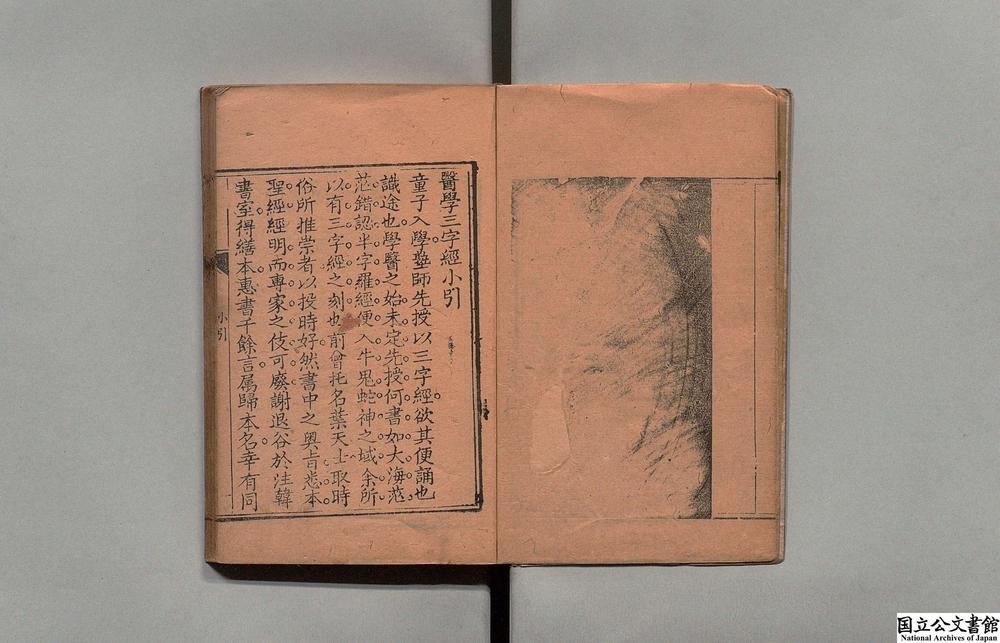 醫學三字經小引
童子入學塾師先授以三字經欲其便誦也
識途也學醫之始未定先授何書如大海茫
茫錯認半字羅經便入牛鬼蛇神之域余所
以有三字經之刻也前曾托名葉天士取時
俗所推崇者以投時好然書中之奧旨悉本
聖經經明而專家之伎可廢謝退谷於注韓
書室得繕本惠書千餘言屬歸本名幸有同
小引
国立公文書館
National Archives of Japan